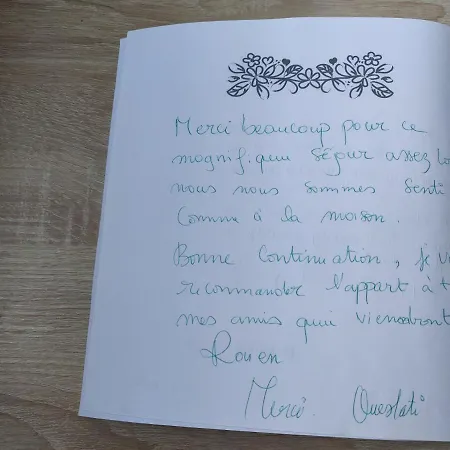 Merci beaucoup pour ce
magnifiquu séjour assez
nous nous sommes senti
Comme à la maison.
Bonne Continuation, je
recommander l'appart à
mes amis quui viendront
Rouen
Merci. Oueslati